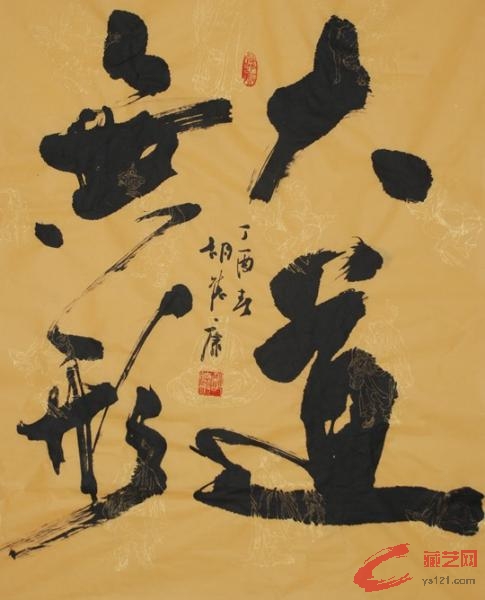 大道
無形
丁酉春
胡
康
藏艺网
ys121.com